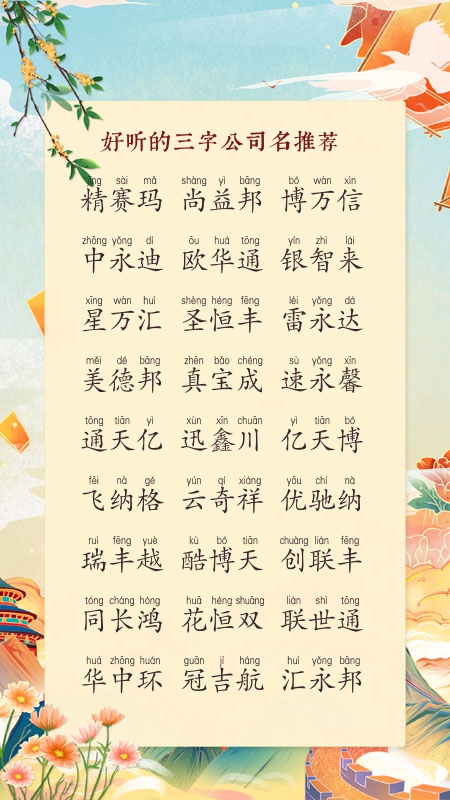 好听的三字公司名推荐
jīng sài mǎ shàng yì bāng bó wàn xìn
精赛玛 尚益邦 博万信
zhōng yǒng dí ōu huá tōng yín zhì lái
中永迪 欧华通 银智来
xīng wàn huì shèng héng fēng léi yǒng dá
星万汇 圣恒丰 雷永达
měi dé bāng zhēn bǎo chéng sù yǒng xīn
美德邦 真宝成 速永馨
tōng tiān yì xùn xīn chuān yì tiān bó
通天亿 迅鑫川 亿天博
fēi nà gé yún qí xiáng yōu chí nà
飞纳格 云奇祥 优驰纳
ruì fēng yuè kù bó tiān chuàng lián fēng
瑞丰越 酷博天 创联丰
tóng cháng hóng huā héng shuāng lián shì tōng
同长鸿 花恒双 联世通
huá zhōng huán guān jí háng huì yǒng bāng
华中环 冠吉航 汇永邦